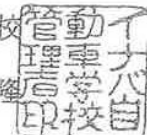 校
イナバ自
動車学校
管理者印